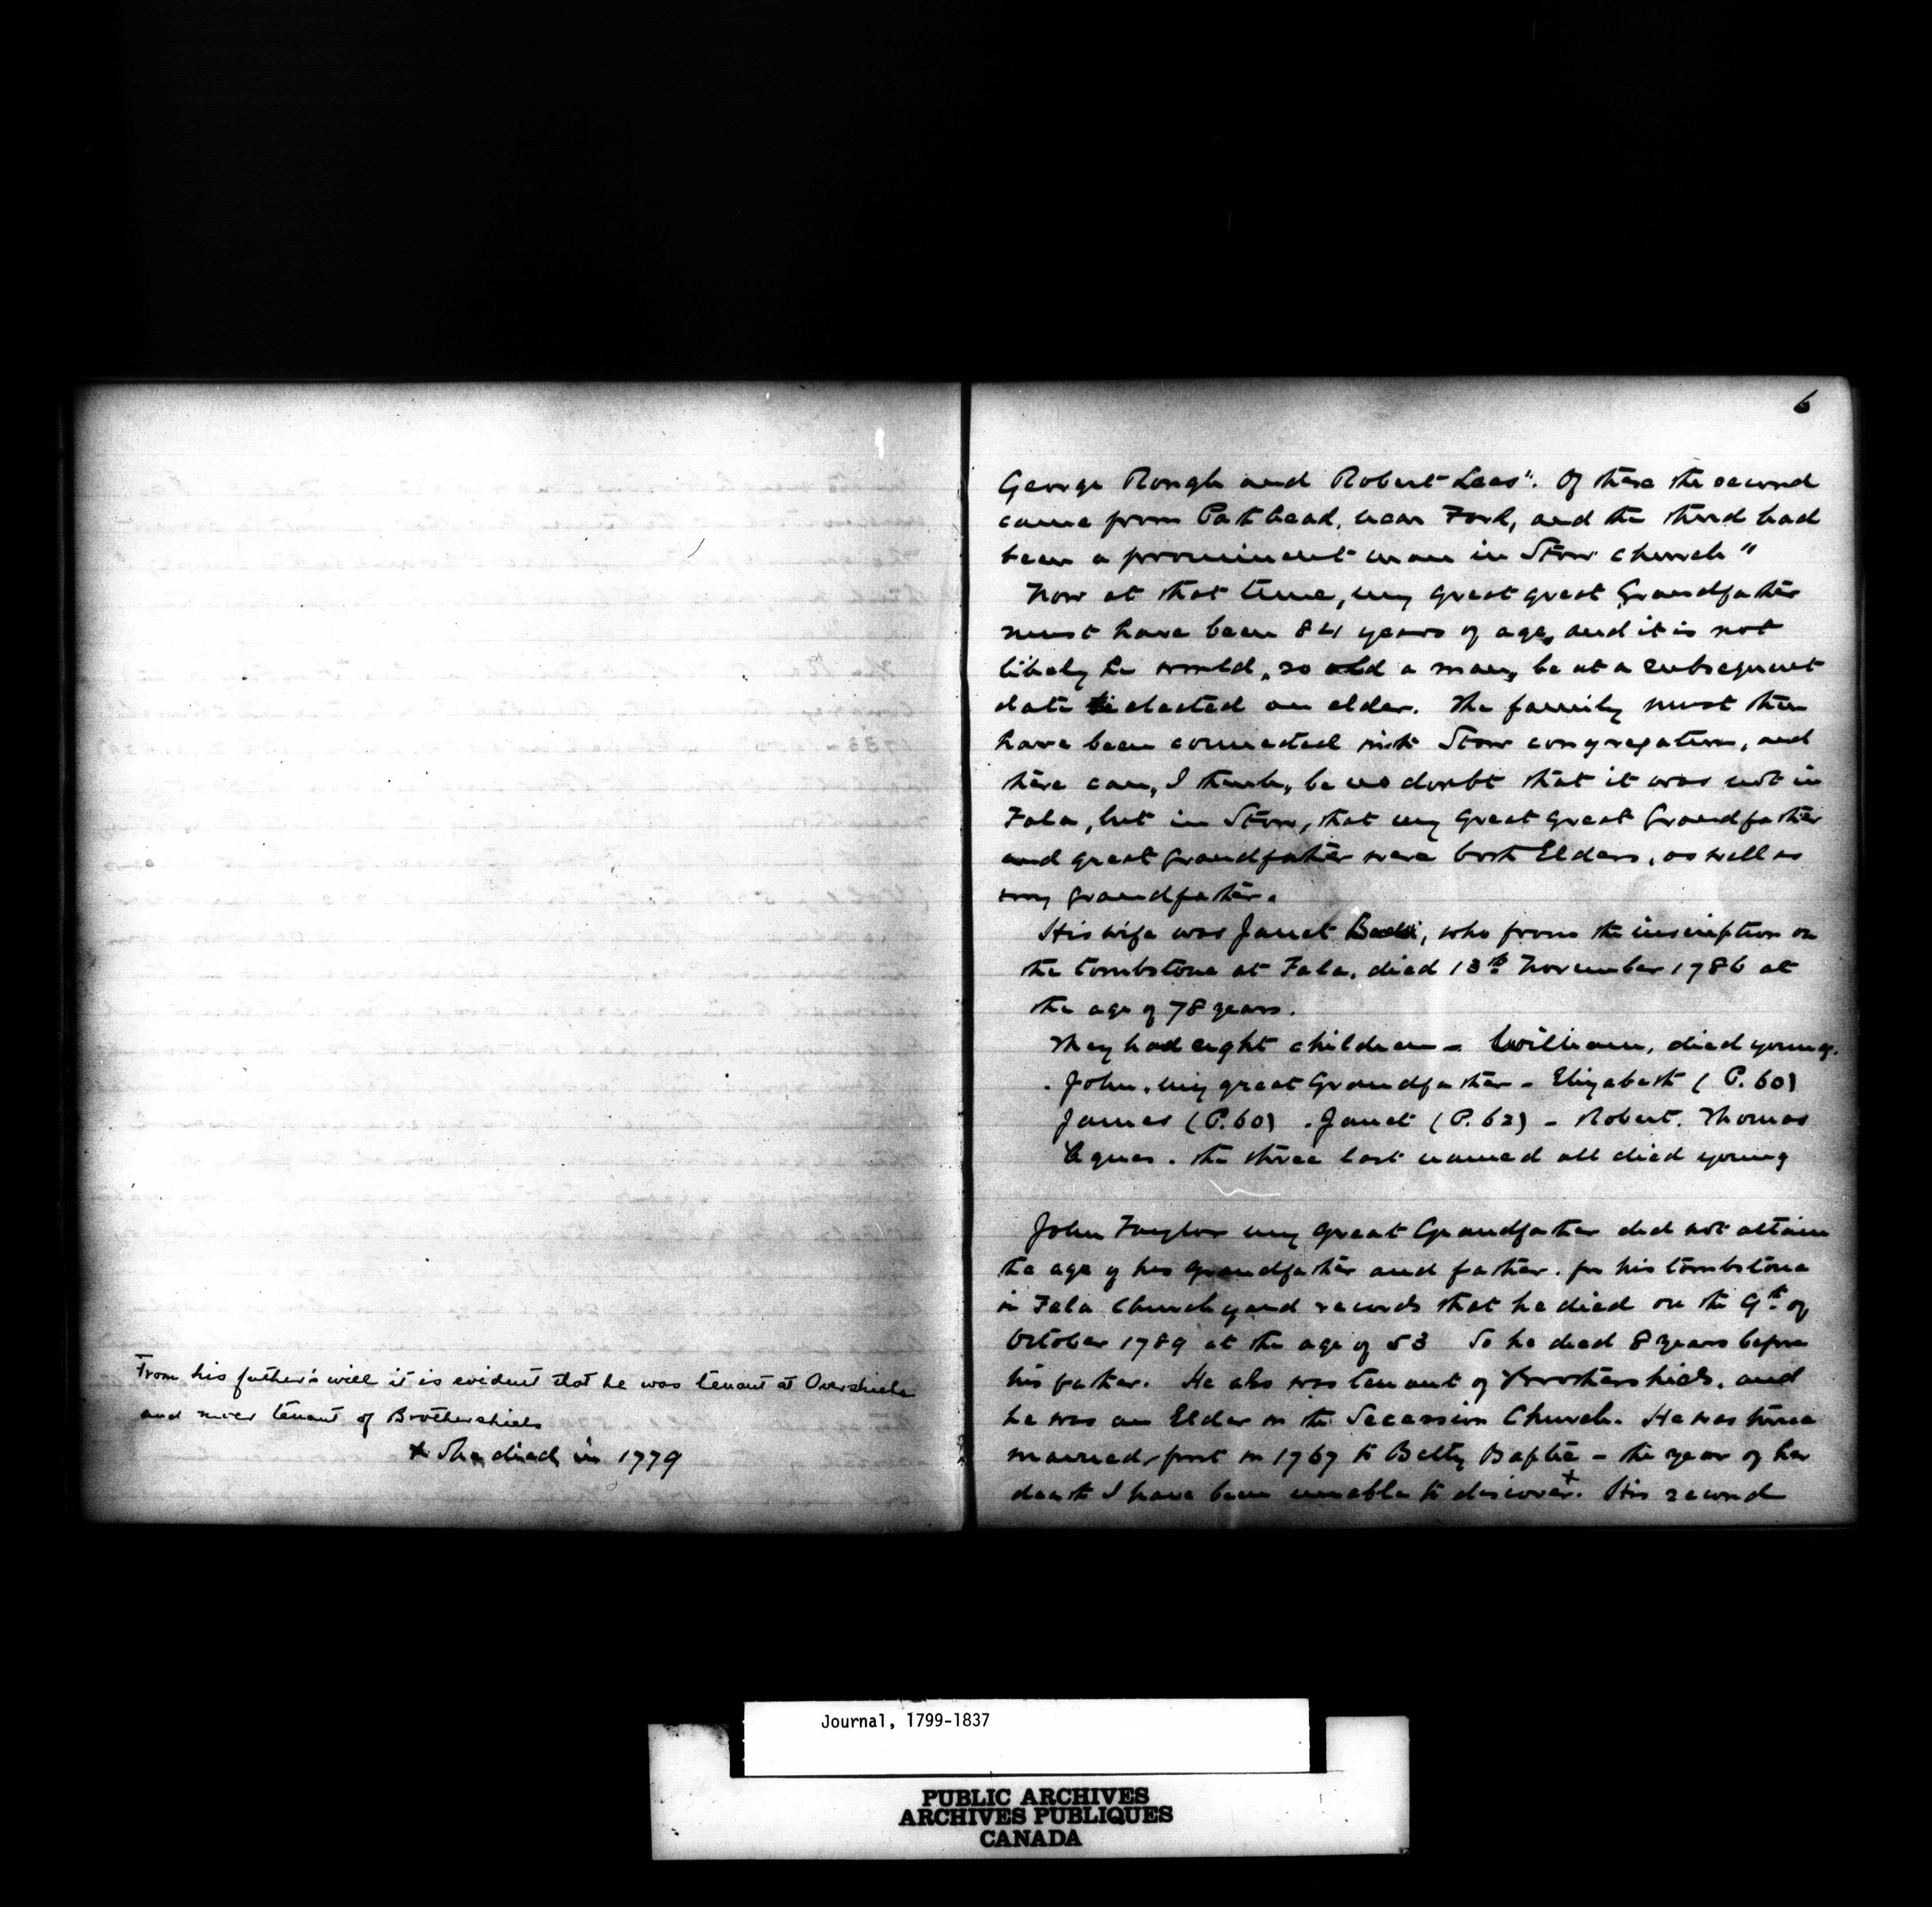 From his father's will it is evident that he was tenant at Overshiels
and never tenant of Brothershiels
x She died in 1779
6
George Rough and Robert Lees". Of these the second
came from Pathead, near Ford, and the third had
been a prominent man in Stow church"
Now at that time, my great great Grandfather
must have been 84 years of age, and it is not
likely he would, so old a man, be at a subsequent
date elected an elder. The family must then
have been connected with Stow congregation, and
there can, I think, be no doubt that it was not in
Fala, but in Stow, that my Great Great Grandfather
and great grandfather were both Elders, as well as
my grandfather.
His wife was Janet, who from the inscription on
the tombstone at Fala, died 13th November 1786 at
the age of 78 years.
They had eight children - William, died young.
. John, my great Grandfather - Elizabeth (P. 60)
James (P. 60) . Janet (P. 62) - Robert. Thomas
Agnes. the three last named all died young
John Taylor my Great Grandfather did not attain
the age of his grandfather and father. for his tombstone
in Fala Churchyard records that he died on the 9th of
October 1789 at the age of 53 So he died 8 years before
his father. He also was tenant of Brothershiels, and
he was an Elder in the Secession Church. He was twice
married, first in 1767 to Betty Baptie - the year of her
death I have been unable to discover x. His second
Journal, 1799-1837
PUBLIC ARCHIVES
ARCHIVES PUBLIQUES
CANADA